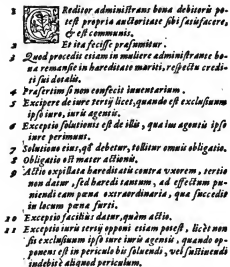 1 CReditor administrans bona debitoris po-
test propria auctoritate sibi satisfacere,
& est communis.
2 Et ita fecisse præsumitur.
3 Quod procedit etiam in muliere administrante bo-
na remansæ in hæreditate mariti, respectu credi-
ti sui dotalis.
4 Præsertim si non confecit inuentarium.
5 Excipere de iure tertij licet, quando est exclusiuum
ipso iure, iuris agentis.
6 Exceptio solutionis est de illis, qua ius agentis ipso
iure perimunt.
7 Solutione eius, quod debetur, tollitur omnis obligatio.
8 Obligatio est mater actionis.
9 Actio expilatæ hæreditatis contra vxorem, tertio
non datur, sed hæredi tantum, ad effectum pu-
niendi eam pœna extraordinaria, quæ succedit
in locum pœnæ furti.
10 Exceptio facilius datur, quàm actio.
11 Exceptio iuris tertij opponi etiam potest, licèt non
sit exclusiuum ipso iure iuris agentis, quando op-
ponens est in periculo bis soluendi, vel sustinendi
indebitè aliquod periculum.